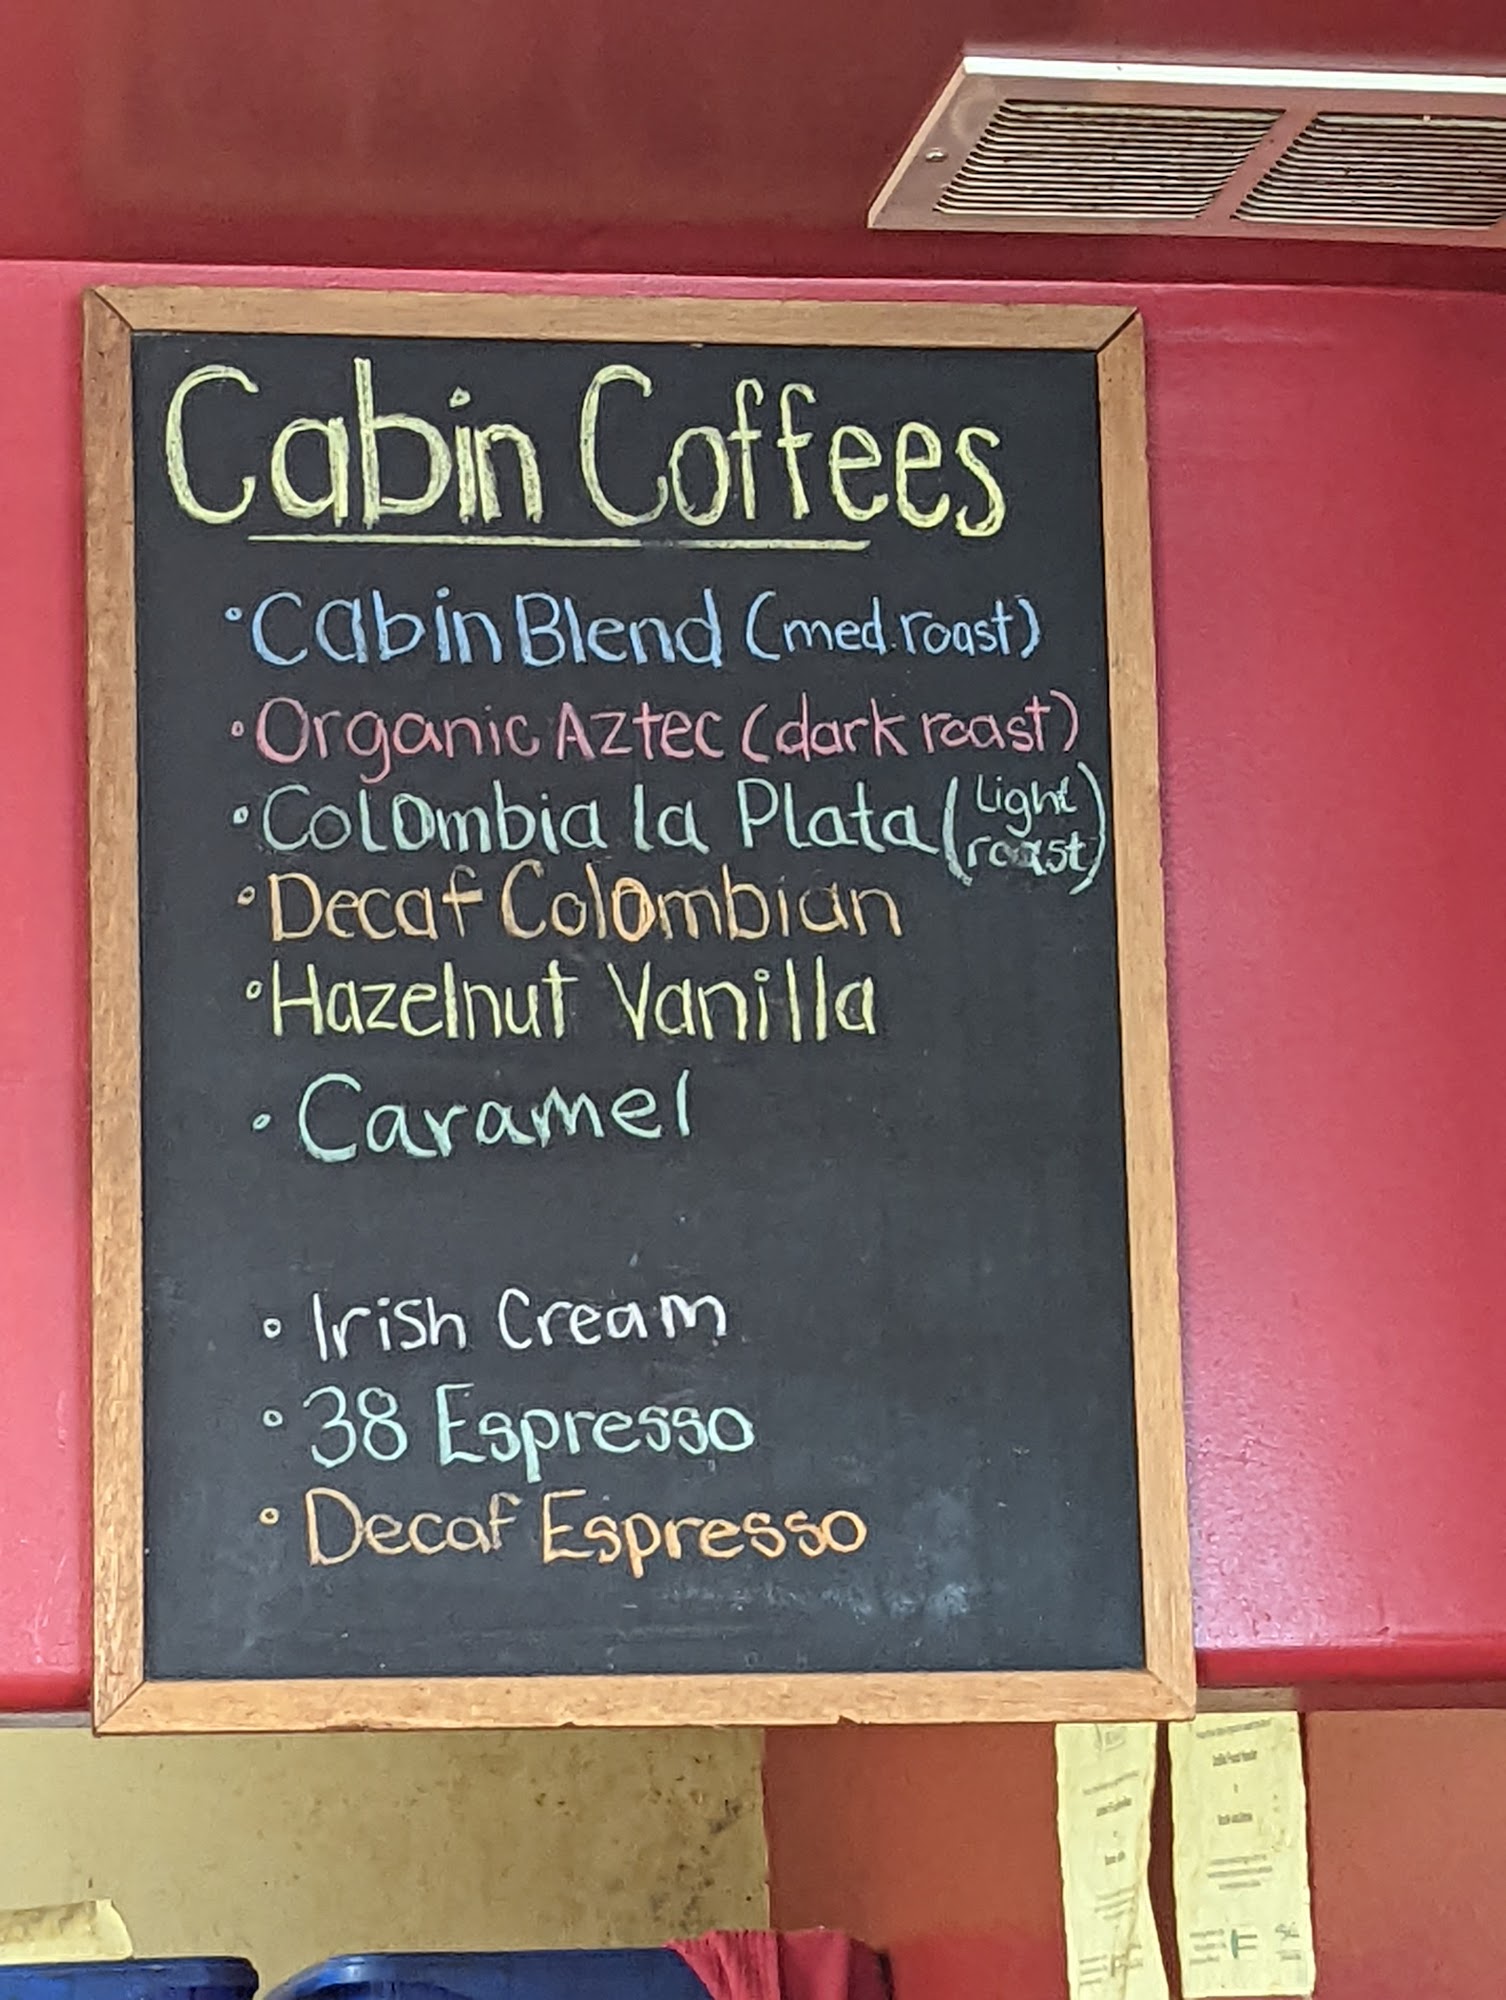 Cabin Coffees
• Cabin Blend (med. roast)
• Organic Aztec (dark roast)
• Colombia la Plata (Light roast)
• Decaf Colombian
• Hazelnut Vanilla
• Caramel
• Irish Cream
• 38 Espresso
• Decaf Espresso